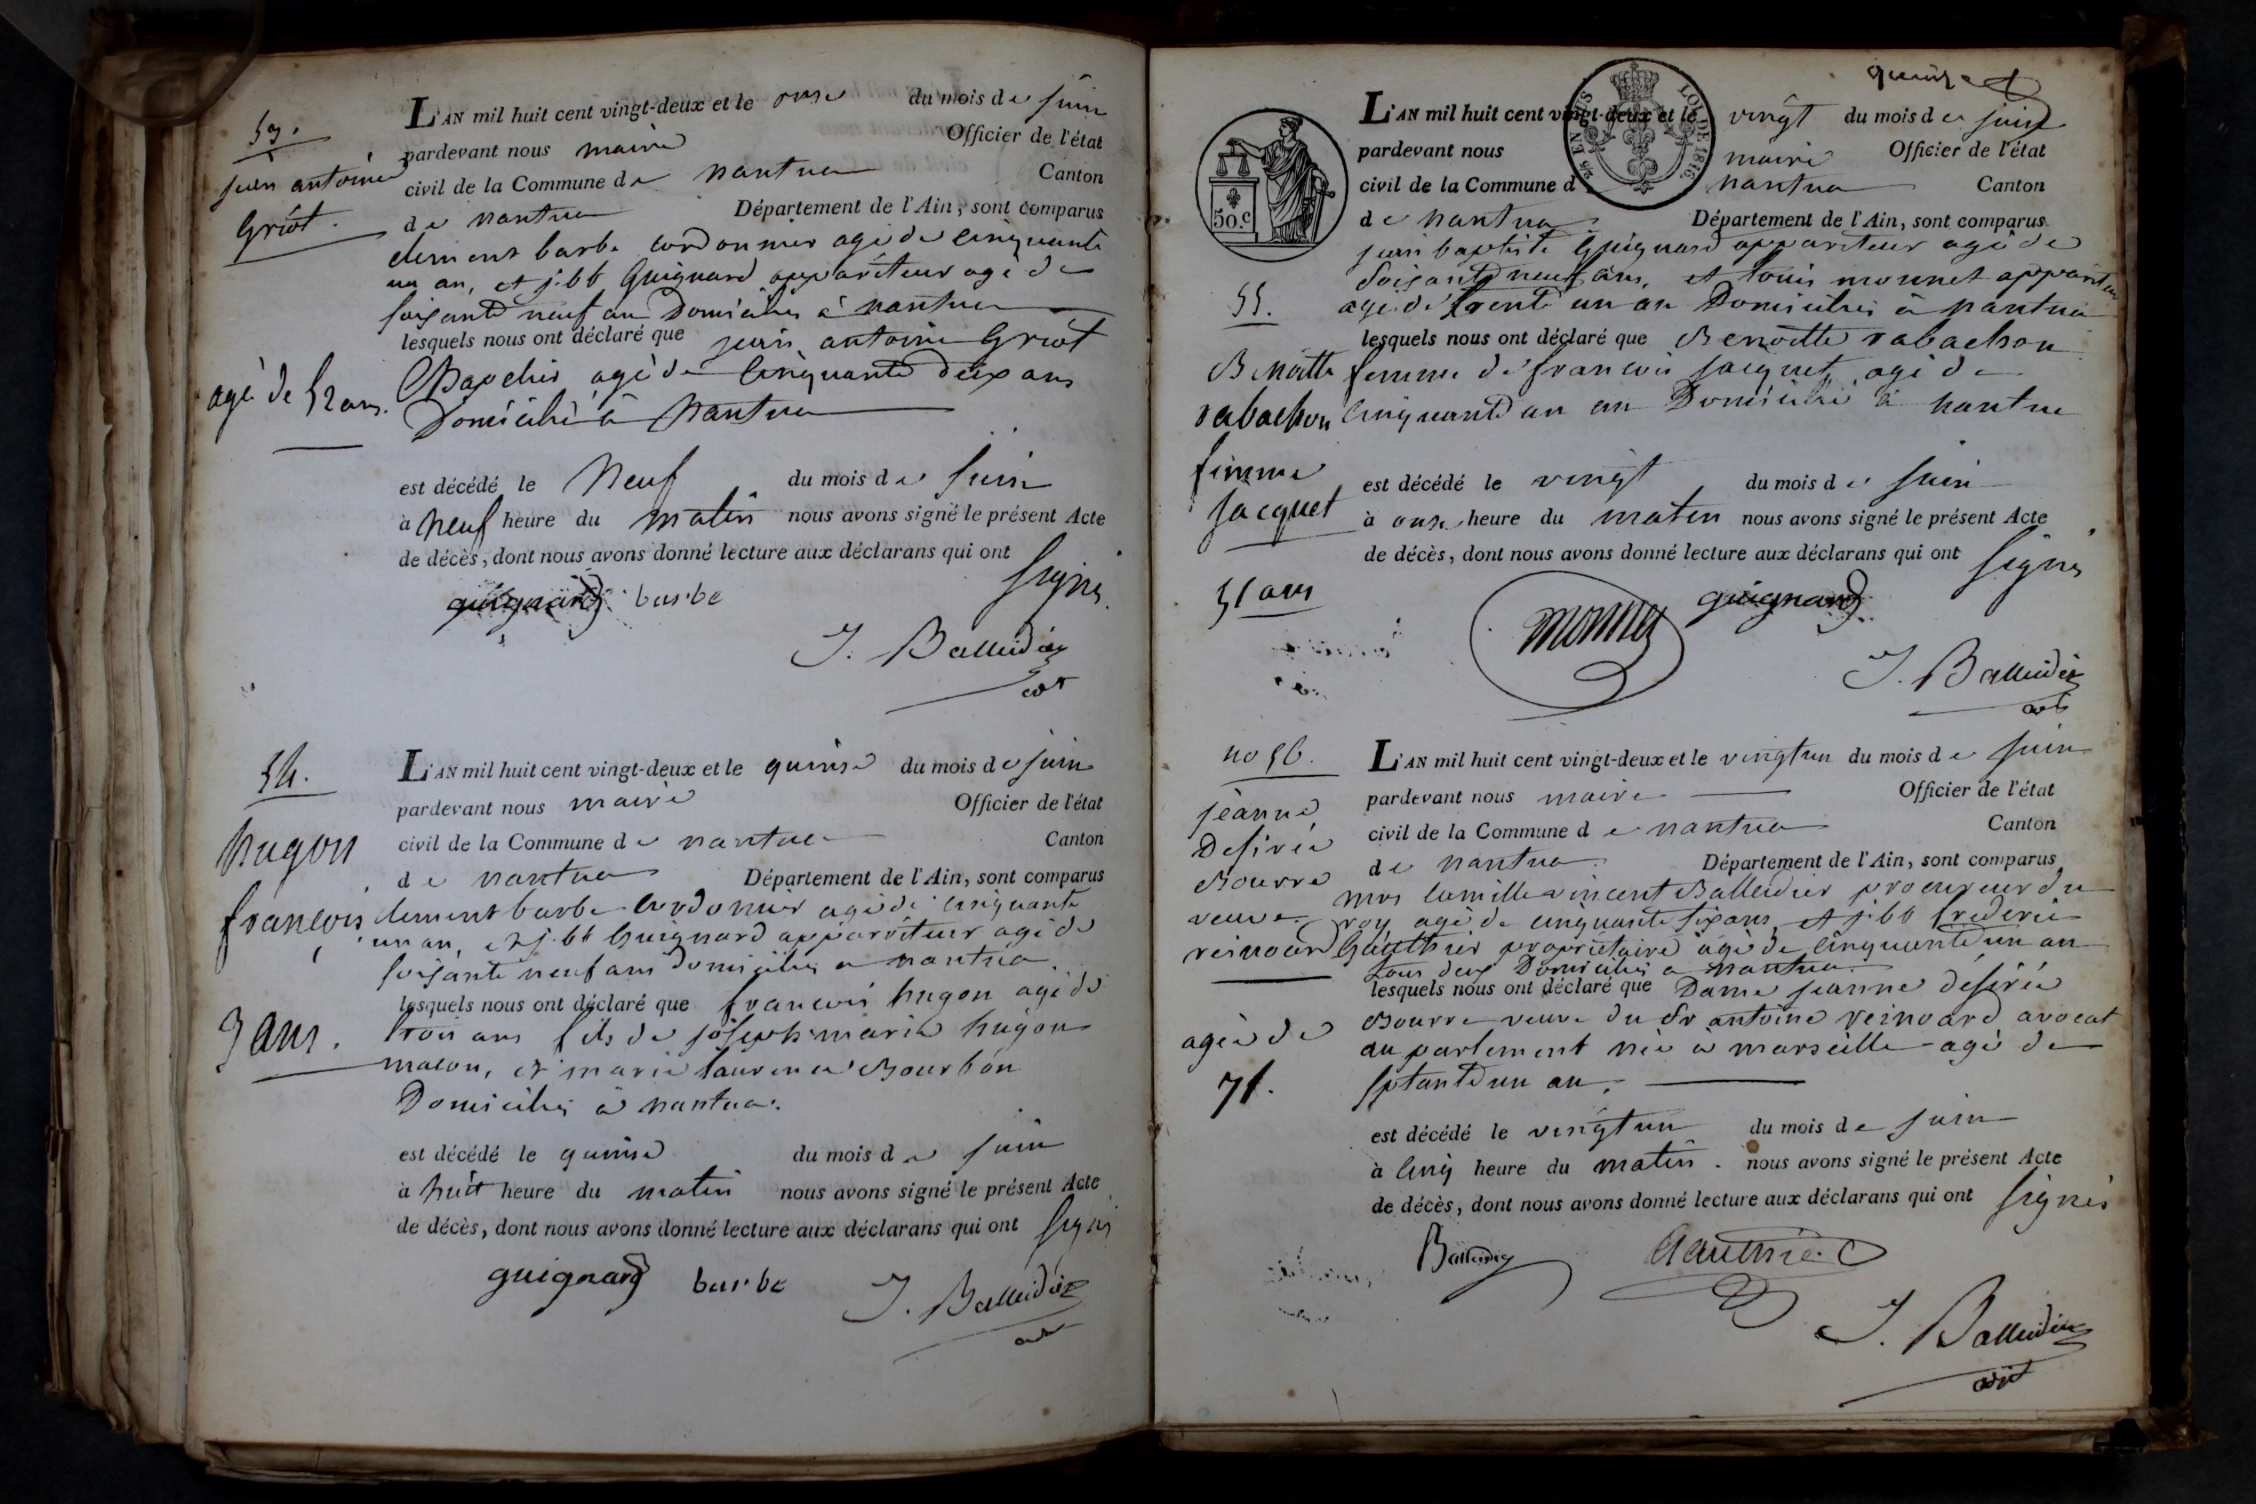 53.
jean antoine
Griot.
agé de 52 ans.
L'AN mil huit cent vingt-deux et le onse du mois de juin
pardevant nous maire Officier de l'état
civil de la Commune de nantua Canton
de nantua Département de l'Ain, sont comparus
clement barbe cordonnier agé de cinquante
un an, et j. bb Guignard appariteur agé de
soisante neuf ans Domiciliés à nantua
lesquels nous ont déclaré que jean antoine Griot
agé de cinquante deux ans
Domicilié à Nantua
est décédé le Neuf du mois de juin
à neuf heure du matin nous avons signé le présent Acte
de décès, dont nous avons donné lecture aux déclarans qui ont signés.
guignard barbe
J. Balleidier
54.
hugon
françois
3 ans.
L'AN mil huit cent vingt-deux et le quinse du mois de juin
pardevant nous maire Officier de l'état
civil de la Commune de nantua Canton
de nantua Département de l'Ain, sont comparus
clement barbe cordonier agé de cinquante
un an, et j. bb Guignard apparriteur agé de
soisante neuf ans domiciliés a nantua.
lesquels nous ont déclaré que francois hugon agé de
trois ans fils de joseph marie hugon
macon, et marie laurence Bourbon
Domiciliés à nantua.
est décédé le quinse du mois de juin
à huit heure du matin nous avons signé le présent Acte
de décès, dont nous avons donné lecture aux déclarans qui ont signés
guignard barbe J. Balleidier
50.c
LOI DE 1816
55.
Benoitte
rabachon
femme
jacquet
51 ans
L'AN mil huit cent vingt-deux et le vingt du mois de juin
pardevant nous maire Officier de l'état
civil de la Commune d nantua Canton
de nantua Département de l'Ain, sont comparus
jean baptiste Guignard appariteur agé de
soisante neuf ans, et louis monnet appariteur
agé de trente un an Domiciliés à nantua
lesquels nous ont déclaré que Benoitte rabachon
femme de francois jacquet agé de
cinquante un an Domicilié à nantua
est décédé le vingt du mois de juin
à onse heure du matin nous avons signé le présent Acte
de décès, dont nous avons donné lecture aux déclarans qui ont signés
monnet guignard
J. Balleidier
no 56.
jeanne
Desirée
Bourre
veuve
reinoard
agée de
71.
L'AN mil huit cent vingt-deux et le vingtun du mois de juin
pardevant nous maire Officier de l'état
civil de la Commune de nantua Canton
de nantua Département de l'Ain, sont comparus
mrs camille vincent Balleidier procureur du
roy agé de cinquante six ans, et j. bb frederic
Gauthier propriétaire agé de cinquante un an
tous deux Domiciliés a nantua.
lesquels nous ont déclaré que Dame jeanne desirée
Bourre veuve du Sr antoine reinoard avocat
au parlement née à marseille agé de
septante un an.
est décédé le vingtun du mois de juin
à cinq heure du matin. nous avons signé le présent Acte
de décès, dont nous avons donné lecture aux déclarans qui ont signés
Balleidier Gauthier
J. Balleidier
adjt